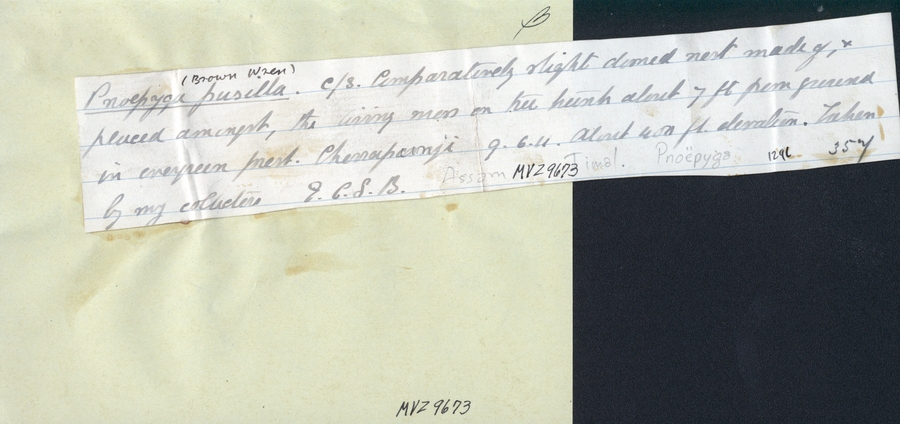 (Brown Wren)
Pnoepyga pusilla. C/3. Comparatively slight domed nest made of, &
placed amongst, the living moss on tree trunk about 7 ft from ground
in evergreen forest. Cherrapoonji 9.6.11. About 400 ft. elevation. Taken
by my collectors E.C.S.B.
Assam MVZ 9673 Timal. Pnoëpyga 1296 35 7/
MVZ 9673